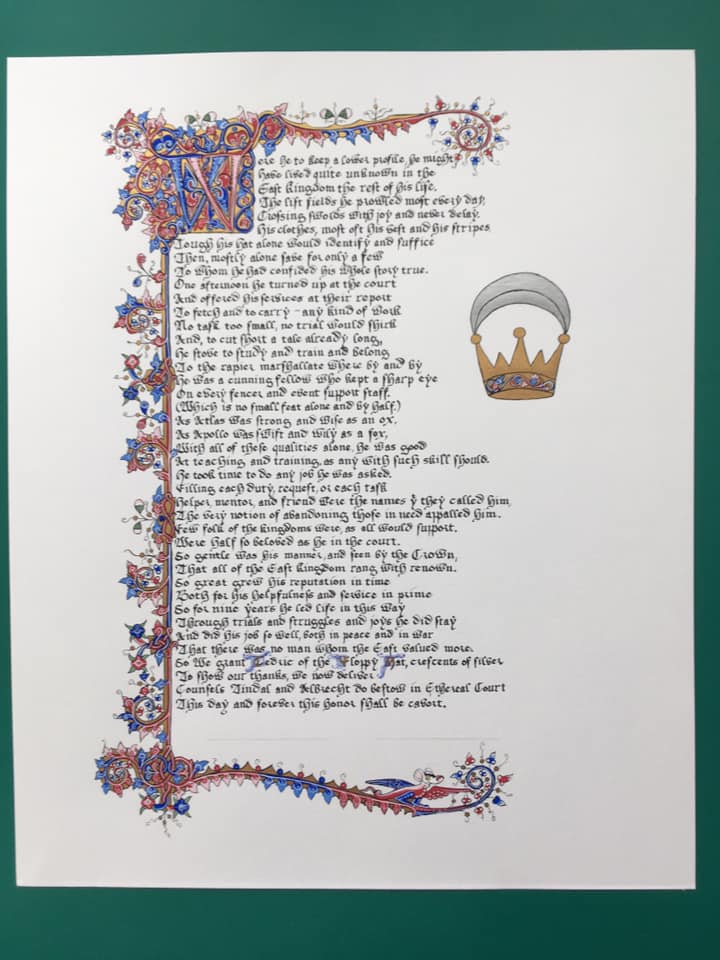 Were he to keep a lower profile, he might
have lived quite unknown in the
East Kingdom the rest of his life.
The list fields he prowled most every day,
Crossing swords with joy and never delay.
His clothes, most oft his vest and his stripes
Tough his hat alone would identify and suffice
Then, mostly alone save for only a few
To whom he had confided his whole story true.
One afternoon he turned up at the court
And offered his services at their report
To fetch and to carry – any kind of work
No task too small, no trial would shirk
And, to cut short a tale already long,
He stove to study and train and belong
To the rapier marshallate where by and by
He was a cunning fellow who kept a sharp eye
On every fencer and event support staff.
(Which is no small feat alone and by half.)
As Atlas was strong and wise as an ox,
As Apollo was swift and wily as a fox,
With all of these qualities alone, he was good
At teaching and training, as any with such skill should.
He took time to do any job he was asked.
Filling each duty, request, or each task
Helper, mentor, and friend were the names ẏ they called him,
The very notion of abandoning those in need appalled him.
Few folk of the kingdoms were, as all would support,
Were half so beloved as he in the court.
So gentle was his manner, and seen by the Crown,
That all of the East Kingdom rang with renown.
So great grew his reputation in time
Both for his helpfulness and service in prime
So for nine years he led life in this way
Through trials and struggles and joys he did stay
And did his job so well, both in peace and in war
That there was no man whom the East valued more.
So We grant Tedric of the Floppy Hat, crescents of silver
To show our thanks, we now deliver
Counsels Tindal and Albrecht do bestow in Ethereal Court
This day and forever this honor shall be cavort.